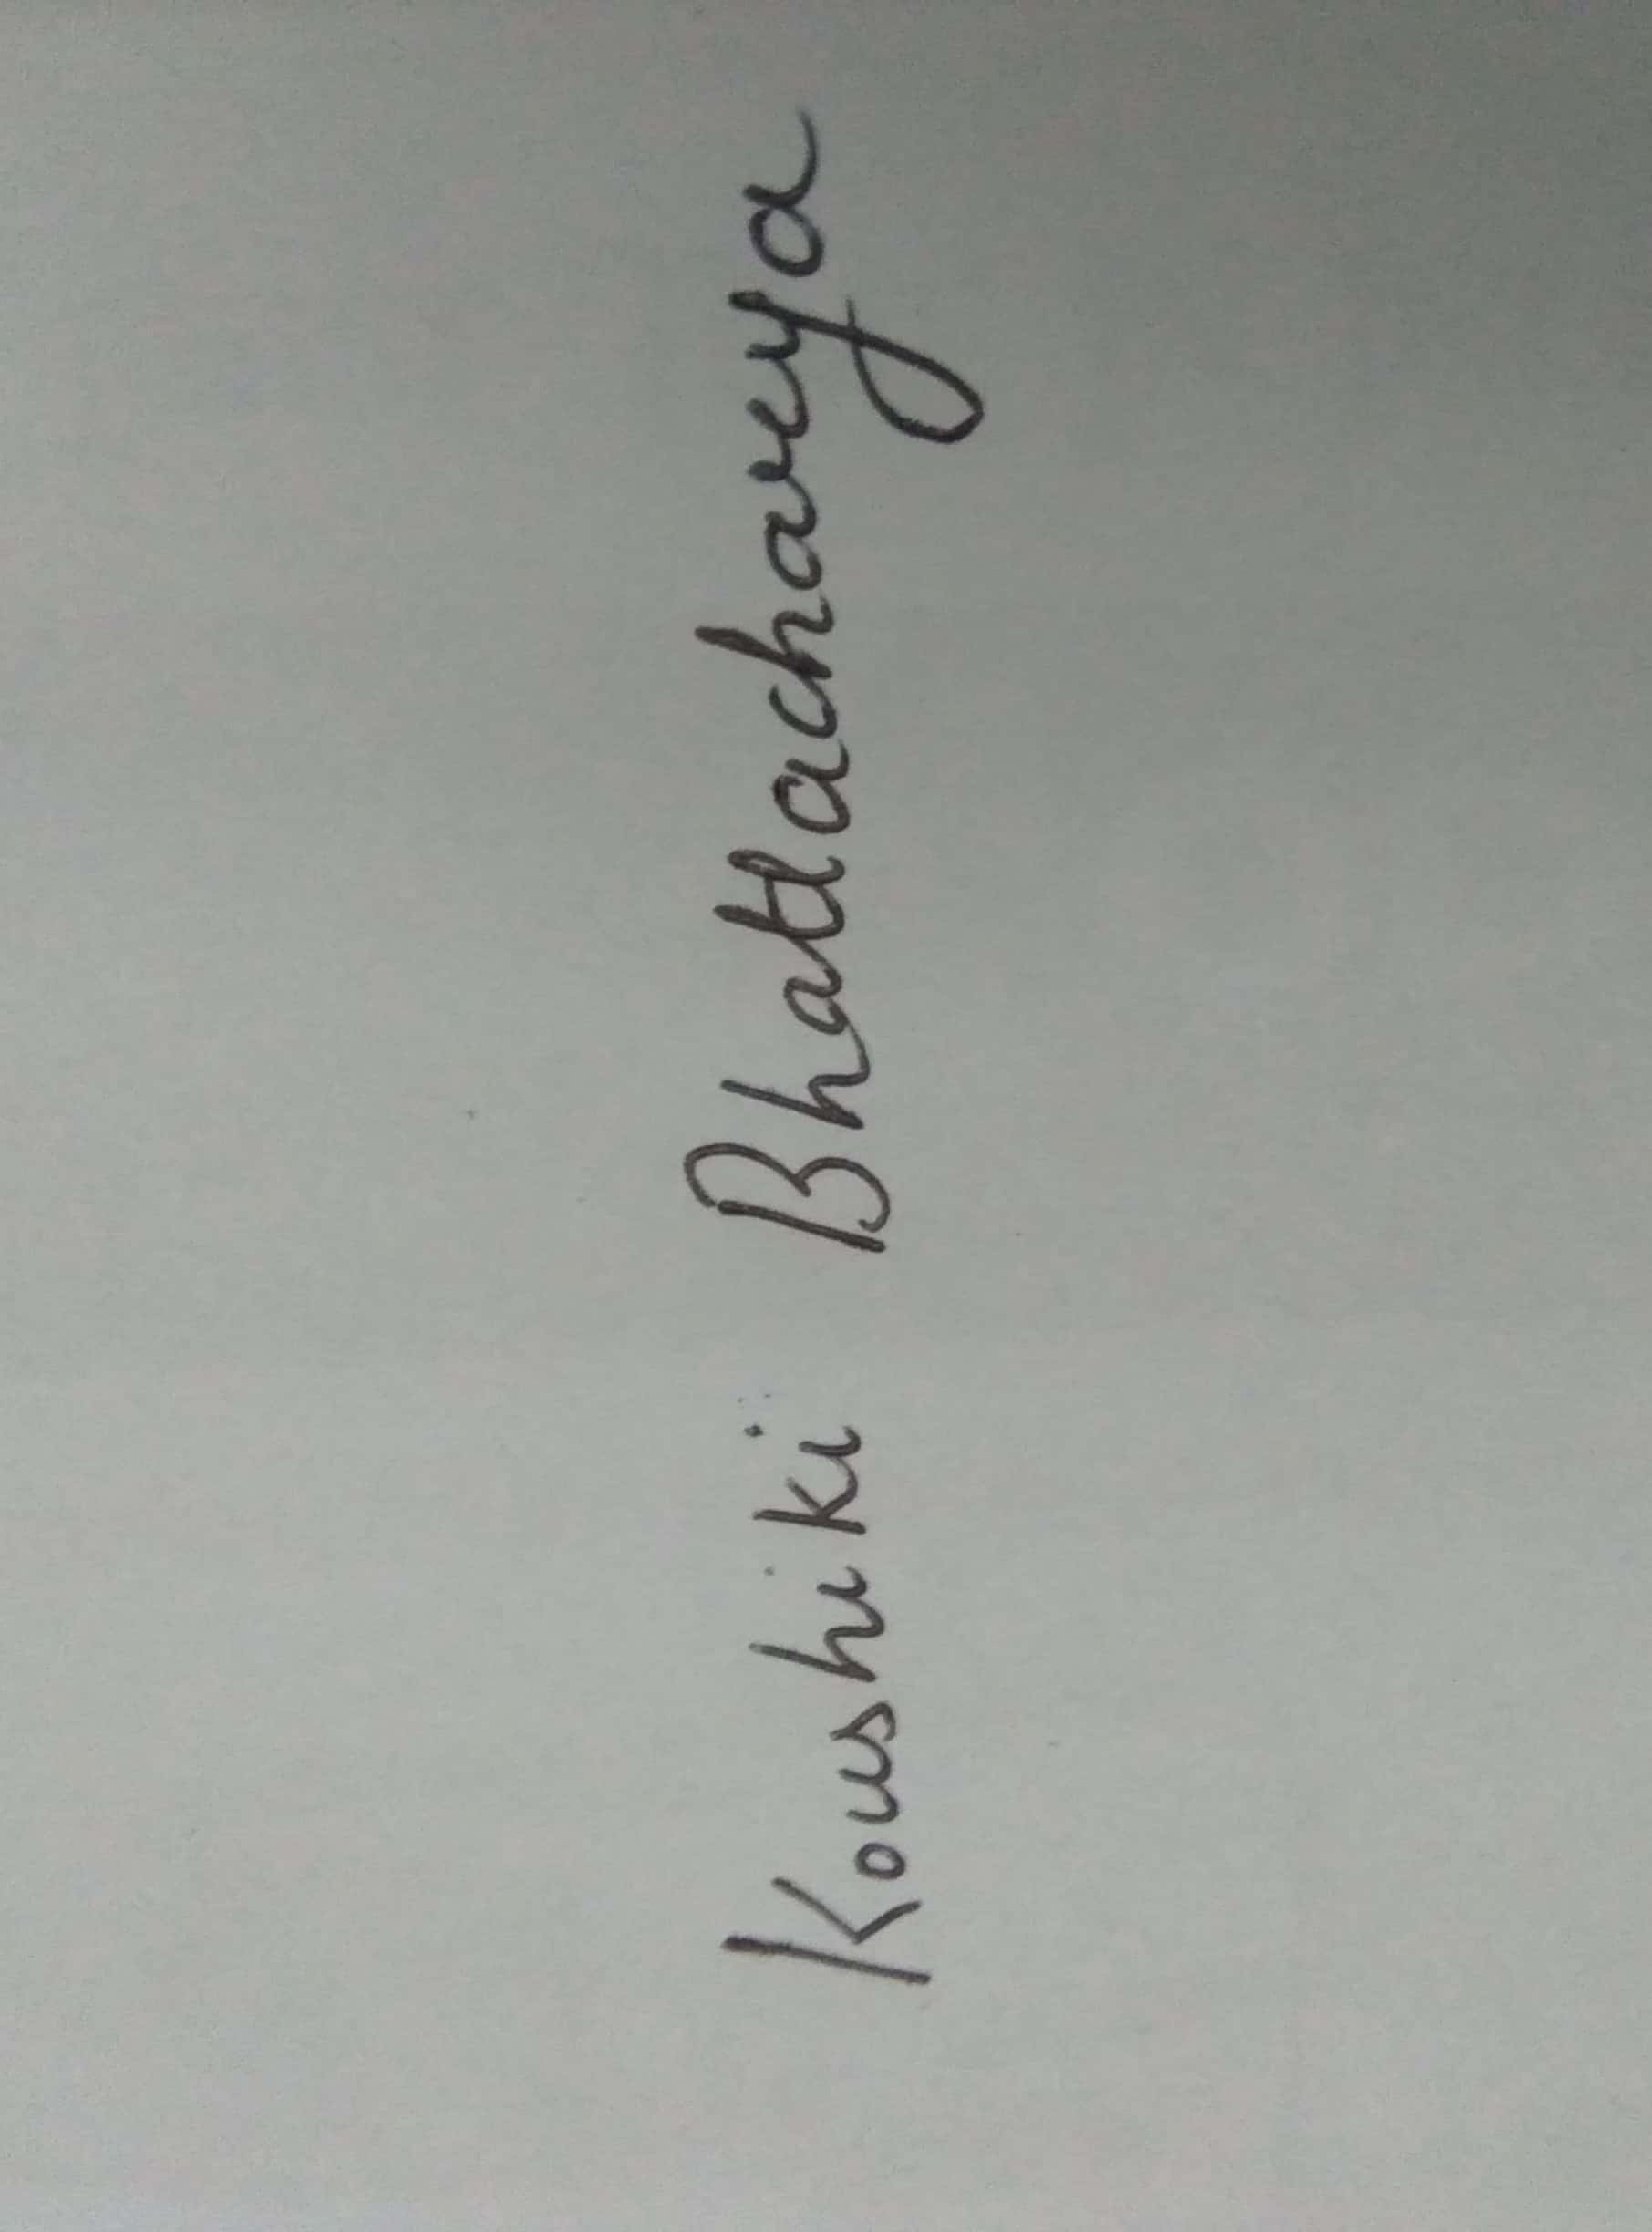 Koushiki Bhattacharya